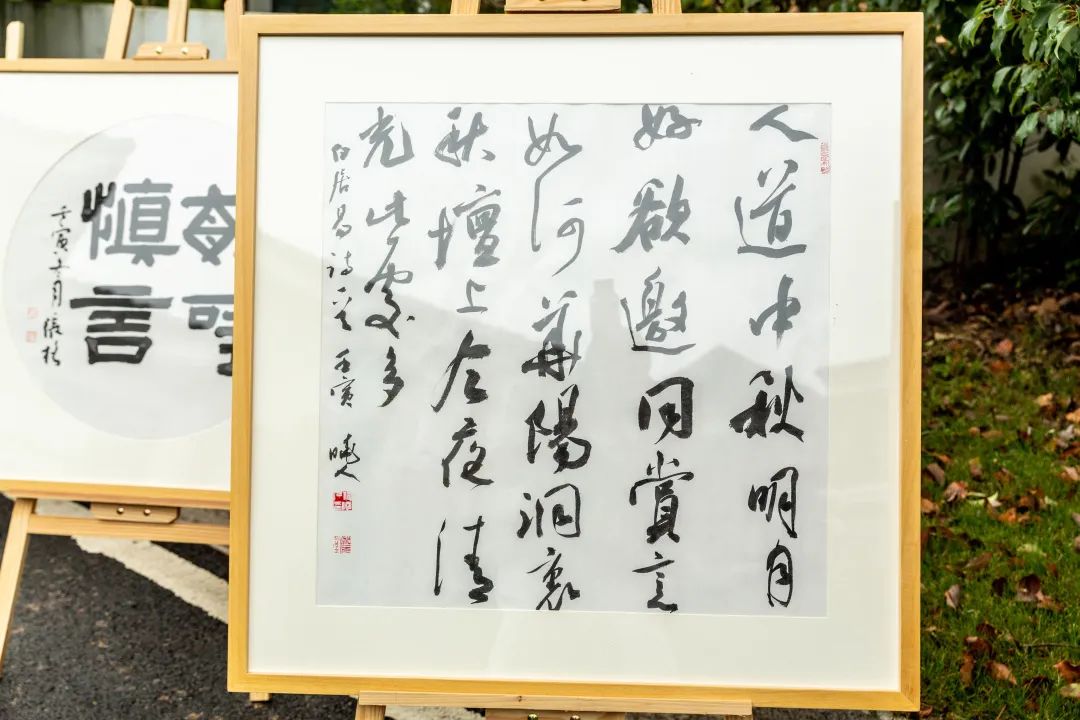 人道中秋明月
好欲邀同賞意
如何華陽洞裏
秋壇上今夜清
光此處多
白居易詩 壬寅
慎言
壬寅